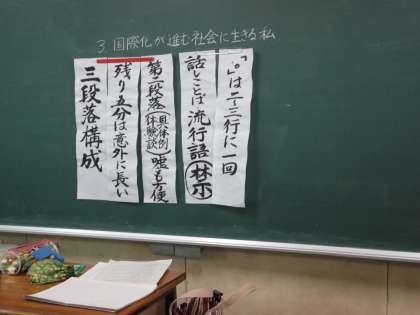 3. 国際化が進む社会に生きる私
「。」は二~三行に一回
話しことば 流行語 禁止
第二段落(具体例 体験談)嘘も方便
残り五分は意外に長い
三段落構成